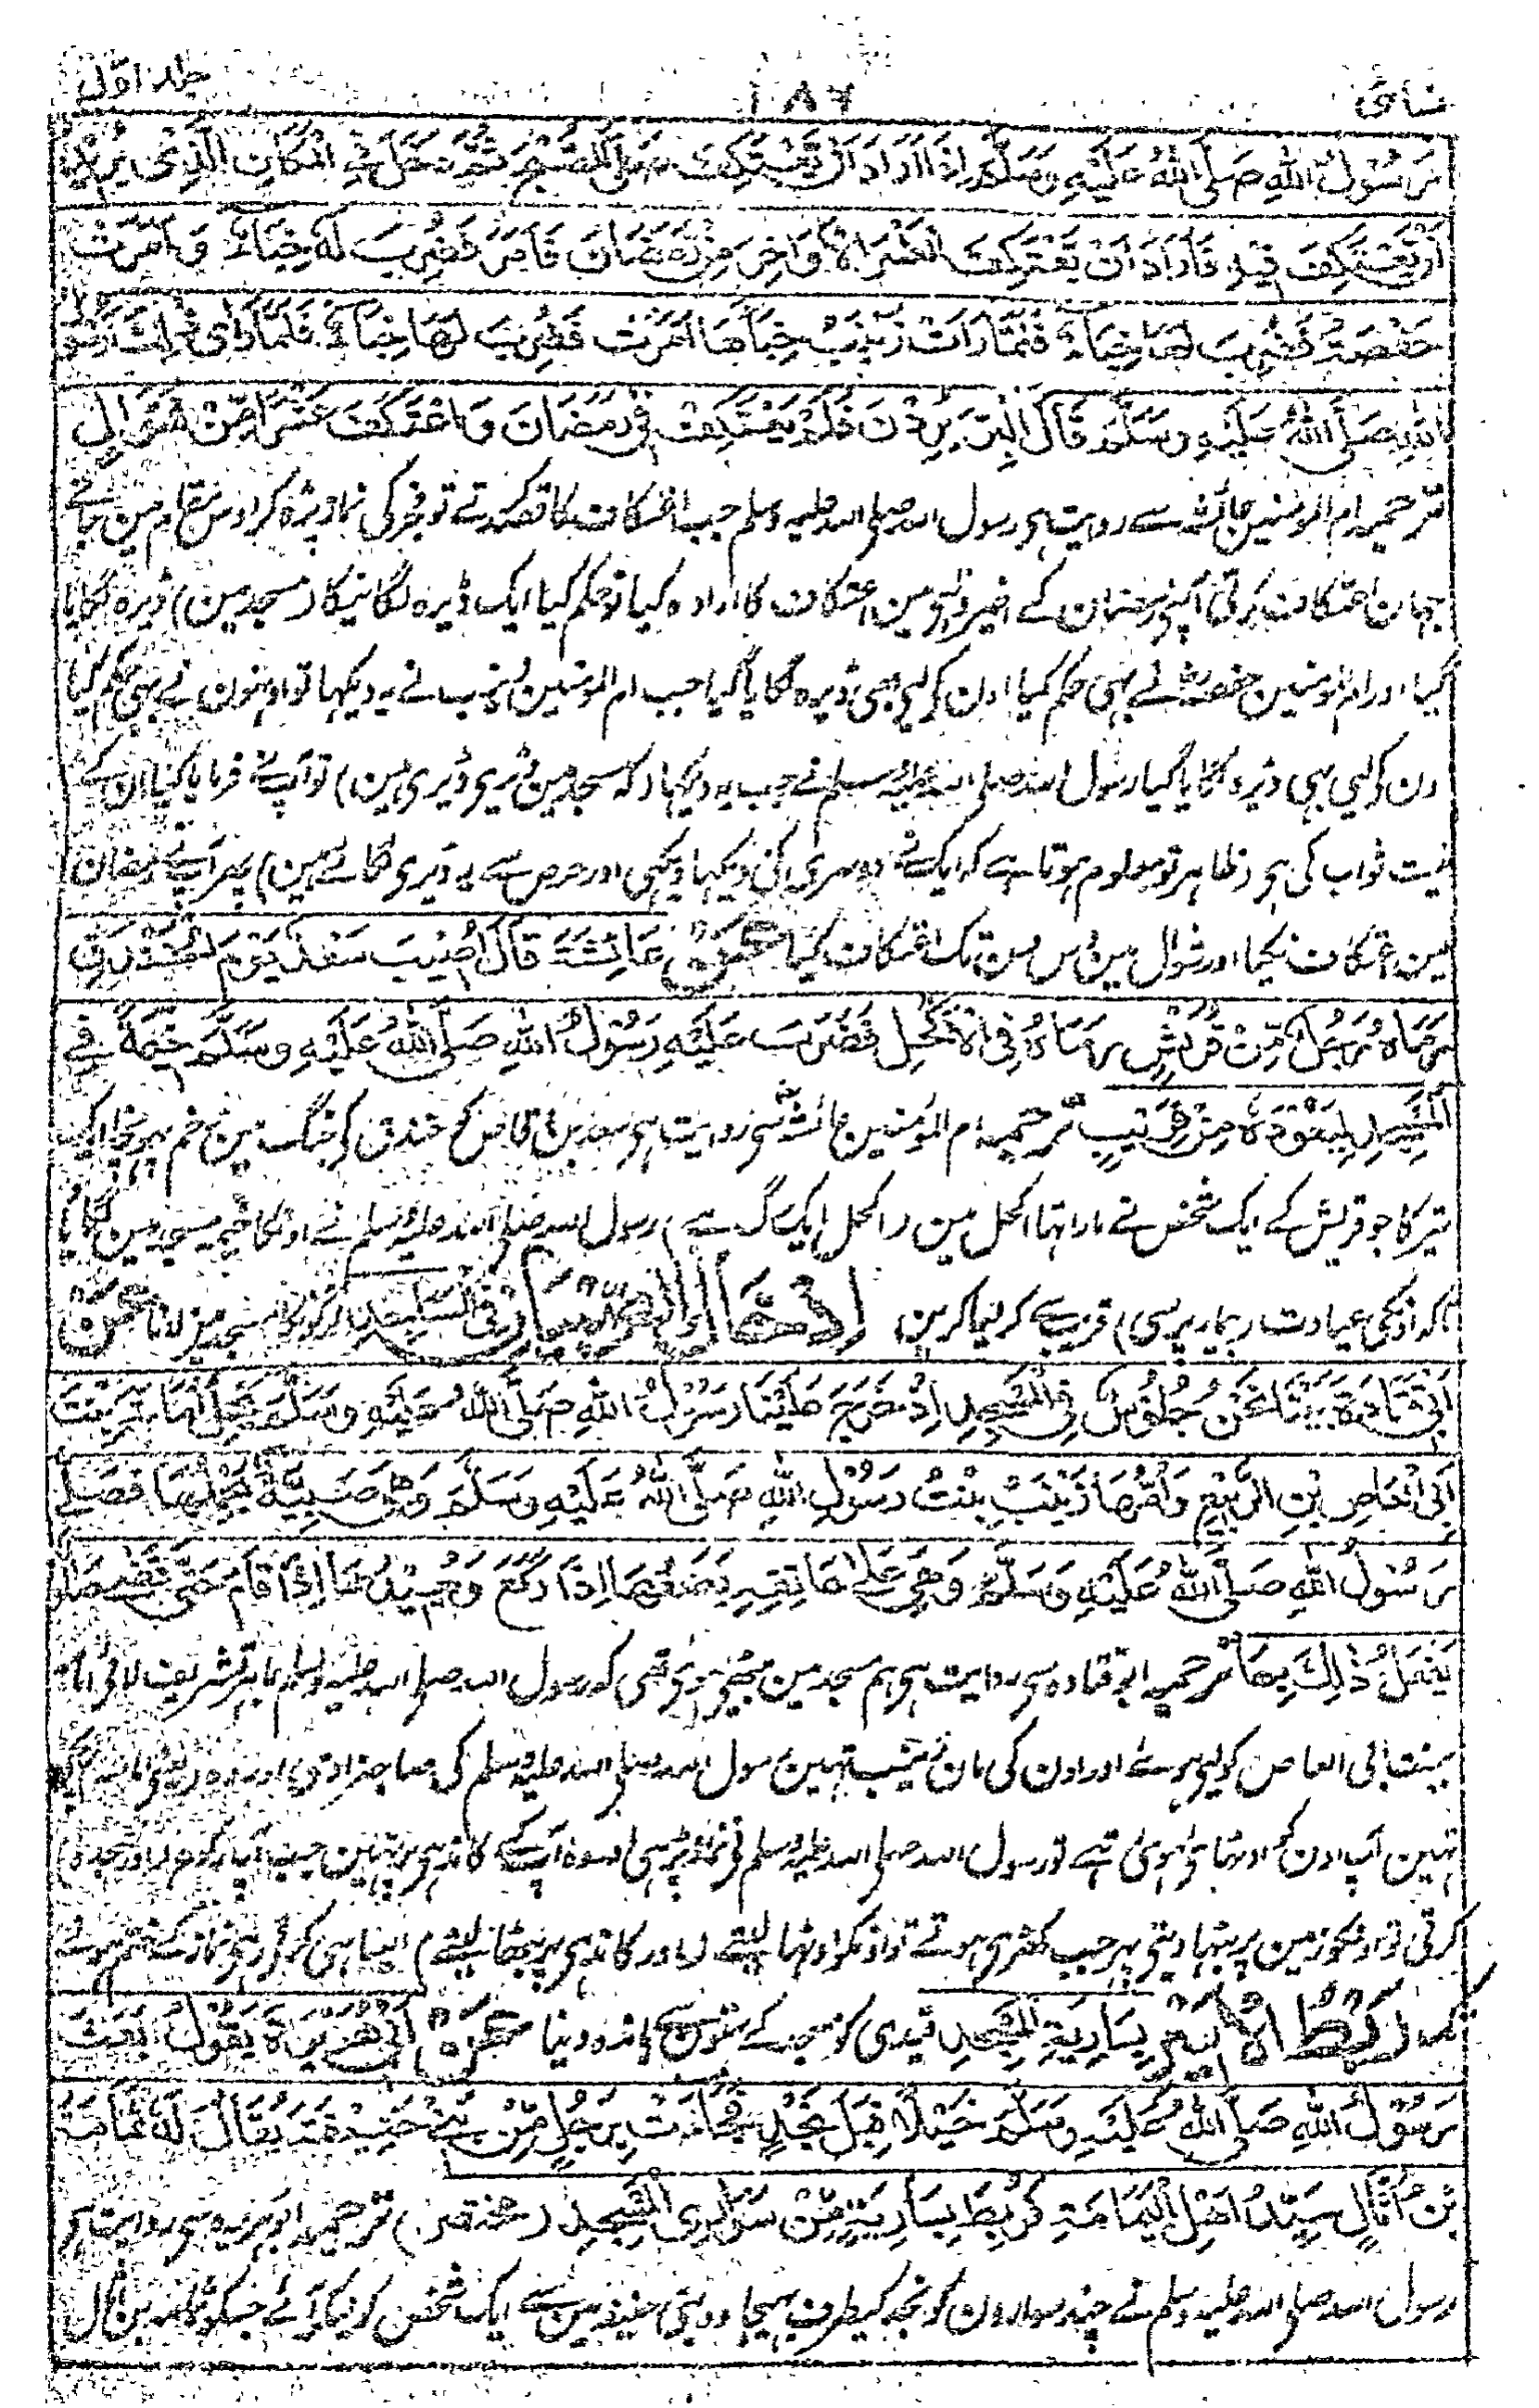 نسائی ۱۸۷ جلد اوّل
رَسُوْلُ اللهِ صَلَّى اللهُ عَلَيْهِ وَسَلَّمَ اِذَا اَرَادَ اَنْ يَّعْتَكِفَ صَلَّى الصُّبْحَ ثُمَّ دَخَلَ فِي الْمَكَانِ الَّذِيْ يُرِيْدُ
اَنْ يَّعْتَكِفَ فِيْهِ فَاَرَادَ اَنْ يَّعْتَكِفَ الْعَشْرَ الْاَوَاخِرَ مِنْ رَمَضَانَ فَاَمَرَ فَضُرِبَ لَهٗ خِبَاءٌ وَ اَمَرَتْ
حَفْصَةُ فَضُرِبَ لَهَا خِبَاءٌ فَلَمَّا رَاَتْ زَيْنَبُ خِبَاءَهَا اَمَرَتْ فَضُرِبَ لَهَا خِبَاءٌ فَلَمَّا رَاٰى ذٰلِكَ رَسُوْلُ
اللهِ صَلَّى اللهُ عَلَيْهِ وَسَلَّمَ قَالَ اٰلْبِرَّ يُرِدْنَ فَلَمْ يَعْتَكِفْ فِيْ رَمَضَانَ وَاعْتَكَفَ عَشْرًا مِّنْ شَوَّالٍ
ترجمہ ام المؤمنین عائشہ سے روایت ہی رسول اللہ صلی اللہ علیہ وسلم جب اعتکاف کا قصد کرتے تو فجر کی نماز پڑہ کر اوس مقام مین جاتے
جہان اعتکاف کرتی آپنی رمضان کے اخیر دہی مین اعتکاف کا ارادہ کیا تو حکم کیا ایک ڈیرہ لگانیکا (مسجد مین) ڈیرہ لگایا
گیا اور ام المؤمنین حفصہ نے بہی حکم کیا اون کی لیی بہی ڈیرہ لگایا گیا جب ام المؤمنین زینب نے یہ دیکہا تو اونہون نے بہی حکم کیا
ون کی لیی بہی ڈیرہ لگایا گیا رسول اللہ صلی اللہ علیہ وسلم نے جب یہ دیکہا (کہ مسجد مین ڈیری ڈیری ہین) تو آپنے فرمایا کیا ان کے
نیت ثواب کی ہی (ظاہر تو معلوم ہوتا ہے کہ ایک نے دوسری کی دیکہا دیکہی اور حرص سے یہ ڈیری لگائے ہین) پہر آپنے رمضان
مین اعتکاف نکیا اور شوال مین دس دن تک اعتکاف کیا عَنْ عَائِشَةَ قَالَ اُصِيْبَ سَعْدٌ يَوْمَ الْخَنْدَقِ
رَمَاهُ رَجُلٌ مِّنْ قُرَيْشٍ رَمَاهُ فِي الْاَكْحَلِ فَضَرَبَ عَلَيْهِ رَسُوْلُ اللهِ صَلَّى اللهُ عَلَيْهِ وَسَلَّمَ خَيْمَةً فِي
الْمَسْجِدِ لِيَعُوْدَهٗ مِنْ قَرِيْبٍ ترجمہ ام المؤمنین عائشہ سی روایت ہی سعد بن وقاص کو خندق کی جنگ مین زخم پہونچا ایک
تیر کا جو قریش کے ایک شخص نے مارا تہا اکحل مین (اکحل ایک رگ ہے) رسول اللہ صلی اللہ علیہ وسلم نے اونکا خیمہ مسجد مین لگایا
تاکہ اونکی عیادت (بیمار پرسی) قریب سے کر لیا کرین اِدْخَالُ الصِّبْيَانِ فِي الْمَسَاجِدِ لڑکون کو مسجد مین لانا عَنْ
اَبِيْ قَتَادَةَ بَيْنَا نَحْنُ جُلُوْسٌ فِي الْمَسْجِدِ اِذْ خَرَجَ عَلَيْنَا رَسُوْلُ اللهِ صَلَّى اللهُ عَلَيْهِ وَسَلَّمَ يَحْمِلُ اُمَامَةَ بِنْتَ
اَبِي الْعَاصِ بْنِ الرَّبِيْعِ وَاُمُّهَا زَيْنَبُ بِنْتُ رَسُوْلِ اللهِ صَلَّى اللهُ عَلَيْهِ وَسَلَّمَ وَهِيَ صَبِيَّةٌ يَحْمِلُهَا فَصَلّٰى
رَسُوْلُ اللهِ صَلَّى اللهُ عَلَيْهِ وَسَلَّمَ وَهِيَ عَلٰى عَاتِقِهٖ يَضَعُهَا اِذَا رَكَعَ وَيُعِيْدُهَا اِذَا قَامَ حَتّٰى قَضٰى صَلٰوتَهٗ
يَفْعَلُ ذٰلِكَ بِهَا ترجمہ ابو قتادہ سی روایت ہی ہم مسجد مین بیٹھی ہوئی تھی کہ رسول اللہ صلی اللہ علیہ وسلم باہر تشریف لائی امامہ
بنت ابی العاص کو لیی ہوئے اور اون کی مان زینب تہین رسول اللہ صلی اللہ علیہ وسلم کی صاحبزادی اور وہ (یعنی امامہ)
تہین آپ اون کو اوٹہائی ہوئی تہے تو رسول اللہ صلی اللہ علیہ وسلم نی نماز پڑہی اور وہ آپ کے کاندہی پر تہین جب آپ رکوع اور سجدہ
کرتی تو اونکو زمین پر بٹہا دیتی پہر جب کہڑی ہوتے تو اونکو اوٹہا لیتے (اور کاندہی پر بٹھا لیتے) ایسا ہی کرتی رہی نماز کے ختم ہونے
تک رَبْطُ الْاَسِيْرِ بِسَارِيَةِ الْمَسْجِدِ قیدی کو مسجد کے ستون سی باندہ دینا عَنْ اَبِيْ هُرَيْرَةَ يَقُوْلُ بَعَثَ
رَسُوْلُ اللهِ صَلَّى اللهُ عَلَيْهِ وَسَلَّمَ خَيْلًا قِبَلَ نَجْدٍ فَجَاءَتْ بِرَجُلٍ مِّنْ بَنِيْ حَنِيْفَةَ يُقَالُ لَهٗ ثُمَامَةُ
بْنُ اُثَالٍ سَيِّدُ اَهْلِ الْيَمَامَةِ فَرُبِطَ بِسَارِيَةٍ مِّنْ سَوَارِي الْمَسْجِدِ (مختصر) ترجمہ ابو ہریرہ سی روایت ہی
رسول اللہ صلی اللہ علیہ وسلم نے چند سوارون کو نجد کیطرف بہیجا وہ بنی حنیفہ مین سے ایک شخص کو لیکر آئے جسکو ثمامہ بن اثال